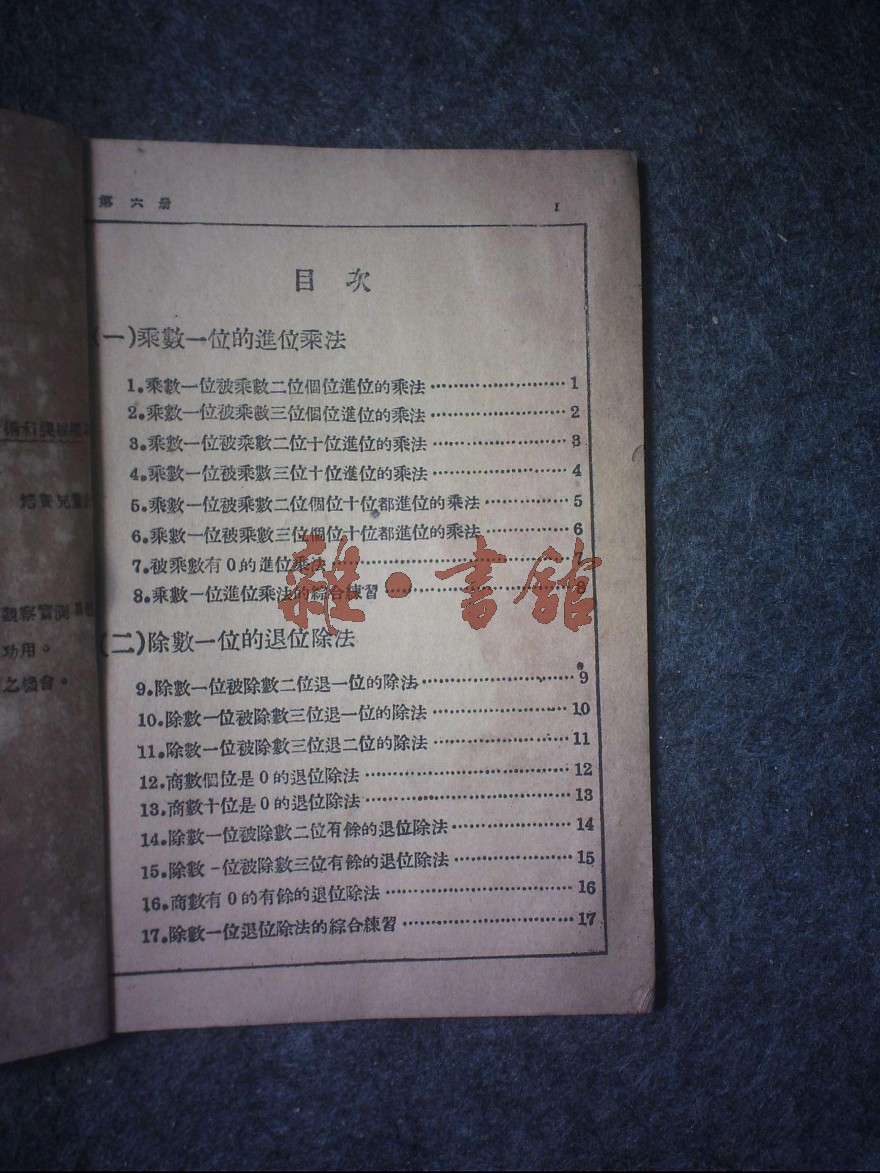 第六册 1
目次
(一)乘數一位的進位乘法
1.乘數一位被乘數二位個位進位的乘法…………………1
2.乘數一位被乘數三位個位進位的乘法…………………2
3.乘數一位被乘數二位十位進位的乘法…………………3
4.乘數一位被乘數三位十位進位的乘法…………………4
5.乘數一位被乘數二位個位十位都進位的乘法…………5
6.乘數一位被乘數三位個位十位都進位的乘法…………6
7.被乘數有0的進位乘法…………………………………7
8.乘數一位進位乘法的綜合練習…………………………8
雜·書館
(二)除數一位的退位除法
9.除數一位被除數二位退一位的除法……………………9
10.除數一位被除數三位退一位的除法…………………10
11.除數一位被除數三位退二位的除法…………………11
12.商數個位是0的退位除法……………………………12
13.商數十位是0的退位除法……………………………13
14.除數一位被除數二位有餘的退位除法………………14
15.除數一位被除數三位有餘的退位除法………………15
16.商數有0的有餘的退位除法…………………………16
17.除數一位退位除法的綜合練習………………………17
觀察實測
功用。
之機會。